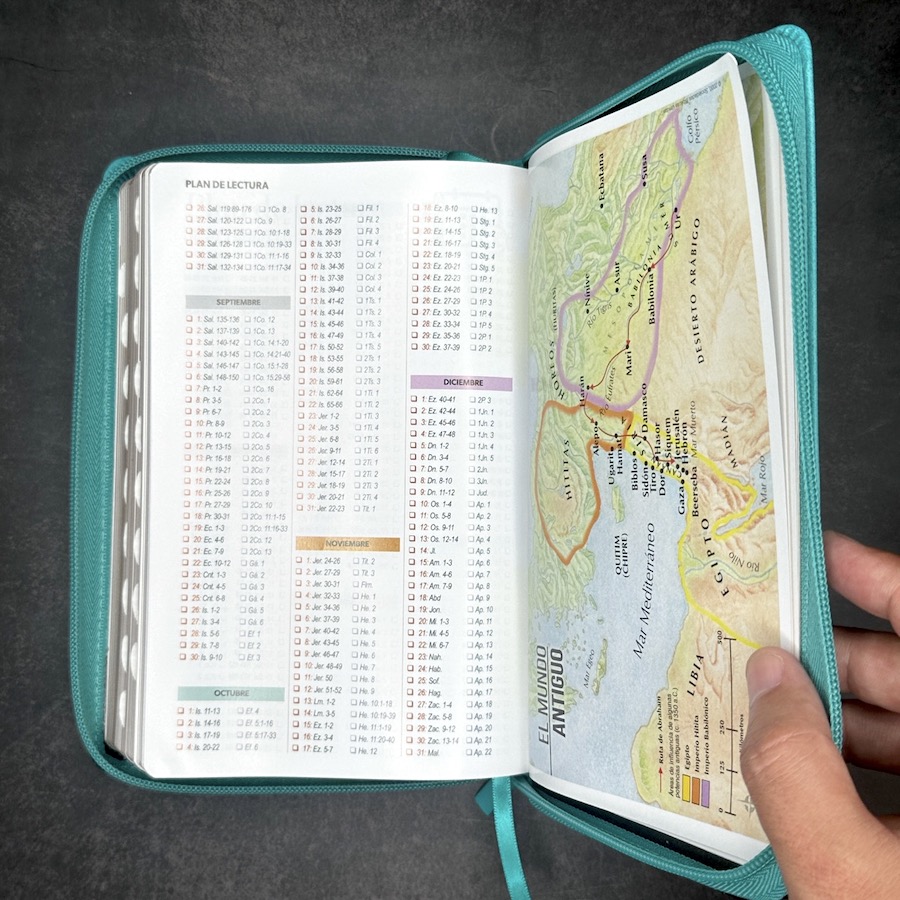 PLAN DE LECTURA
26. Sal. 119:89-176 1Co. 8
27: Sal. 120-122 1Co. 9
28: Sal. 123-125 1Co. 10:1-18
29: Sal. 126-128 1Co. 10:19-33
30: Sal. 129-131 1Co. 11:1-16
31: Sal. 132-134 1Co. 11:17-34
SEPTIEMBRE
1: Sal. 135-136 1Co. 12
2: Sal. 137-139 1Co. 13
3: Sal. 140-142 1Co. 14:1-20
4: Sal. 143-145 1Co. 14:21-40
5: Sal. 146-147 1Co. 15:1-28
6: Sal. 148-150 1Co. 15:29-58
7: Pr. 1-2 1Co. 16
8: Pr. 3-5 2Co. 1
9: Pr. 6-7 2Co. 2
10: Pr. 8-9 2Co. 3
11: Pr. 10-12 2Co. 4
12: Pr. 13-15 2Co. 5
13: Pr. 16-18 2Co. 6
14: Pr. 19-21 2Co. 7
15: Pr. 22-24 2Co. 8
16: Pr. 25-26 2Co. 9
17: Pr. 27-29 2Co. 10
18: Pr. 30-31 2Co. 11:1-15
19: Ec. 1-3 2Co. 11:16-33
20: Ec. 4-6 2Co. 12
21: Ec. 7-9 2Co. 13
22: Ec. 10-12 Gá. 1
23: Cnt. 1-3 Gá. 2
24: Cnt. 4-5 Gá. 3
25: Cnt. 6-8 Gá. 4
26: Is. 1-2 Gá. 5
27: Is. 3-4 Gá. 6
28: Is. 5-6 Ef. 1
29: Is. 7-8 Ef. 2
30: Is. 9-10 Ef. 3
OCTUBRE
1: Is. 11-13 Ef. 4
2: Is. 14-16 Ef. 5:1-16
3: Is. 17-19 Ef. 5:17-33
4: Is. 20-22 Ef. 6
5: Is. 23-25 Fil. 1
6: Is. 26-27 Fil. 2
7: Is. 28-29 Fil. 3
8: Is. 30-31 Fil. 4
9: Is. 32-33 Col. 1
10: Is. 34-36 Col. 2
11: Is. 37-38 Col. 3
12: Is. 39-40 Col. 4
13: Is. 41-42 1Ts. 1
14: Is. 43-44 1Ts. 2
15: Is. 45-46 1Ts. 3
16: Is. 47-49 1Ts. 4
17: Is. 50-52 1Ts. 5
18: Is. 53-55 2Ts. 1
19: Is. 56-58 2Ts. 2
20: Is. 59-61 2Ts. 3
21: Is. 62-64 1Ti. 1
22: Is. 65-66 1Ti. 2
23: Jer. 1-2 1Ti. 3
24: Jer. 3-5 1Ti. 4
25: Jer. 6-8 1Ti. 5
26: Jer. 9-11 1Ti. 6
27: Jer. 12-14 2Ti. 1
28: Jer. 15-17 2Ti. 2
29: Jer. 18-19 2Ti. 3
30: Jer. 20-21 2Ti. 4
31: Jer. 22-23 Tit. 1
NOVIEMBRE
1: Jer. 24-26 Tit. 2
2: Jer. 27-29 Tit. 3
3: Jer. 30-31 Flm.
4: Jer. 32-33 He. 1
5: Jer. 34-36 He. 2
6: Jer. 37-39 He. 3
7: Jer. 40-42 He. 4
8: Jer. 43-45 He. 5
9: Jer. 46-47 He. 6
10: Jer. 48-49 He. 7
11: Jer. 50 He. 8
12: Jer. 51-52 He. 9
13: Lm. 1-2 He. 10:1-18
14: Lm. 3-5 He. 10:19-39
15: Ez. 1-2 He. 11:1-19
16: Ez. 3-4 He. 11:20-40
17: Ez. 5-7 He. 12
18: Ez. 8-10 He. 13
19: Ez. 11-13 Stg. 1
20: Ez. 14-15 Stg. 2
21: Ez. 16-17 Stg. 3
22: Ez. 18-19 Stg. 4
23: Ez. 20-21 Stg. 5
24: Ez. 22-23 1P. 1
25: Ez. 24-26 1P. 2
26: Ez. 27-29 1P. 3
27: Ez. 30-32 1P. 4
28: Ez. 33-34 1P. 5
29: Ez. 35-36 2P. 1
30: Ez. 37-39 2P. 2
DICIEMBRE
1: Ez. 40-41 2P. 3
2: Ez. 42-44 1Jn. 1
3: Ez. 45-46 1Jn. 2
4: Ez. 47-48 1Jn. 3
5: Dn. 1-2 1Jn. 4
6: Dn. 3-4 1Jn. 5
7: Dn. 5-7 2Jn.
8: Dn. 8-10 3Jn.
9: Dn. 11-12 Jud.
10: Os. 1-4 Ap. 1
11: Os. 5-8 Ap. 2
12: Os. 9-11 Ap. 3
13: Os. 12-14 Ap. 4
14: Jl. Ap. 5
15: Am. 1-3 Ap. 6
16: Am. 4-6 Ap. 7
17: Am. 7-9 Ap. 8
18: Abd Ap. 9
19: Jon. Ap. 10
20: Mi. 1-3 Ap. 11
21: Mi. 4-5 Ap. 12
22: Mi. 6-7 Ap. 13
23: Nah. Ap. 14
24: Hab. Ap. 15
25: Sof. Ap. 16
26: Hag. Ap. 17
27: Zac. 1-4 Ap. 18
28: Zac. 5-8 Ap. 19
29: Zac. 9-12 Ap. 20
30: Zac. 13-14 Ap. 21
31: Mal. Ap. 22
EL MUNDO
ANTIGUO
Mar Egeo
Mar Mediterráneo
QUITIM
(CHIPRE)
HITITAS
HOREOS (HURRITAS)
Harán
Alepo
Ugarit
Hamat
Biblos
Sidón
Tiro
Dor
Damasco
Hasor
Siquem
Jerusalén
Hebrón
Gaza
Beerseba
Mar Muerto
Mari
Río Éufrates
Río Tigris
Nínive
Asur
MESOPOTAMIA
BABILONIA
Babilonia
SUMER
Ur
Susa
Ecbatana
Golfo
Pérsico
DESIERTO ARÁBIGO
MADIÁN
Mar Rojo
EGIPTO
Río Nilo
LIBIA
Ruta de Abraham
Áreas de influencia de algunas
potencias antiguas (c. 1350 a.C.)
Egipto
Imperio Hitita
Imperio Babilónico
0 125 250 500
kilómetros